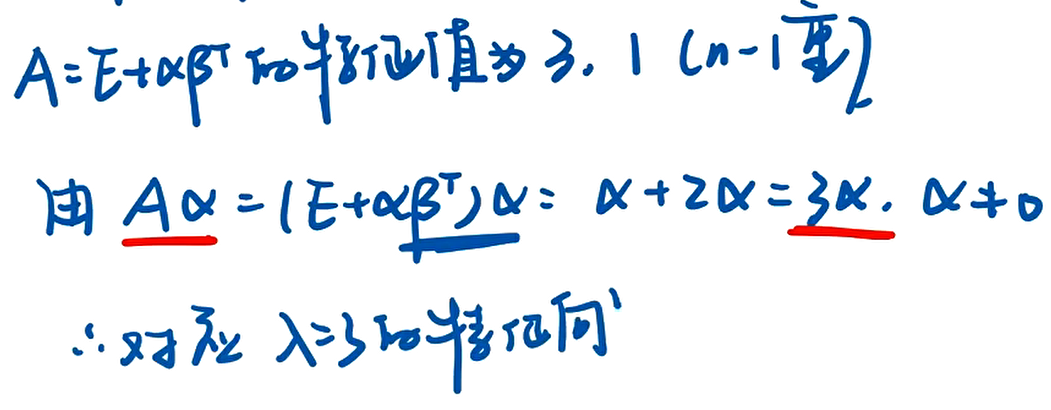 A=E+αβᵀ的特征值为 3. 1 (n-1重)
由 Aα=(E+αβᵀ)α= α+2α=3α. α≠0
∴对应 λ=3的特征向